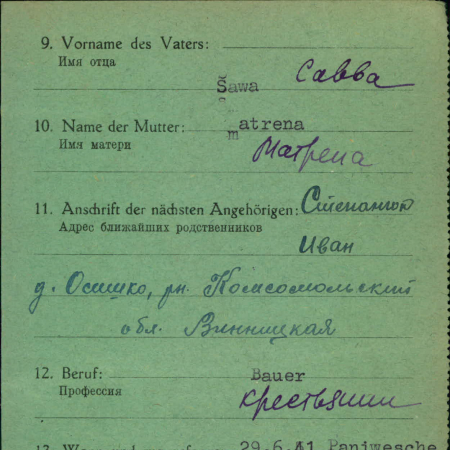 9. Vorname des Vaters:
Имя отца
Sawa Савва
10. Name der Mutter: matrena
Имя матери
Матрена
11. Anschrift der nächsten Angehörigen: Степанюк
Адрес ближайших родственников
Иван
д. Осишко, рн. Комсомольский
обл. Винницкая
12. Beruf: Bauer
Профессия
крестьянин
29.6.41